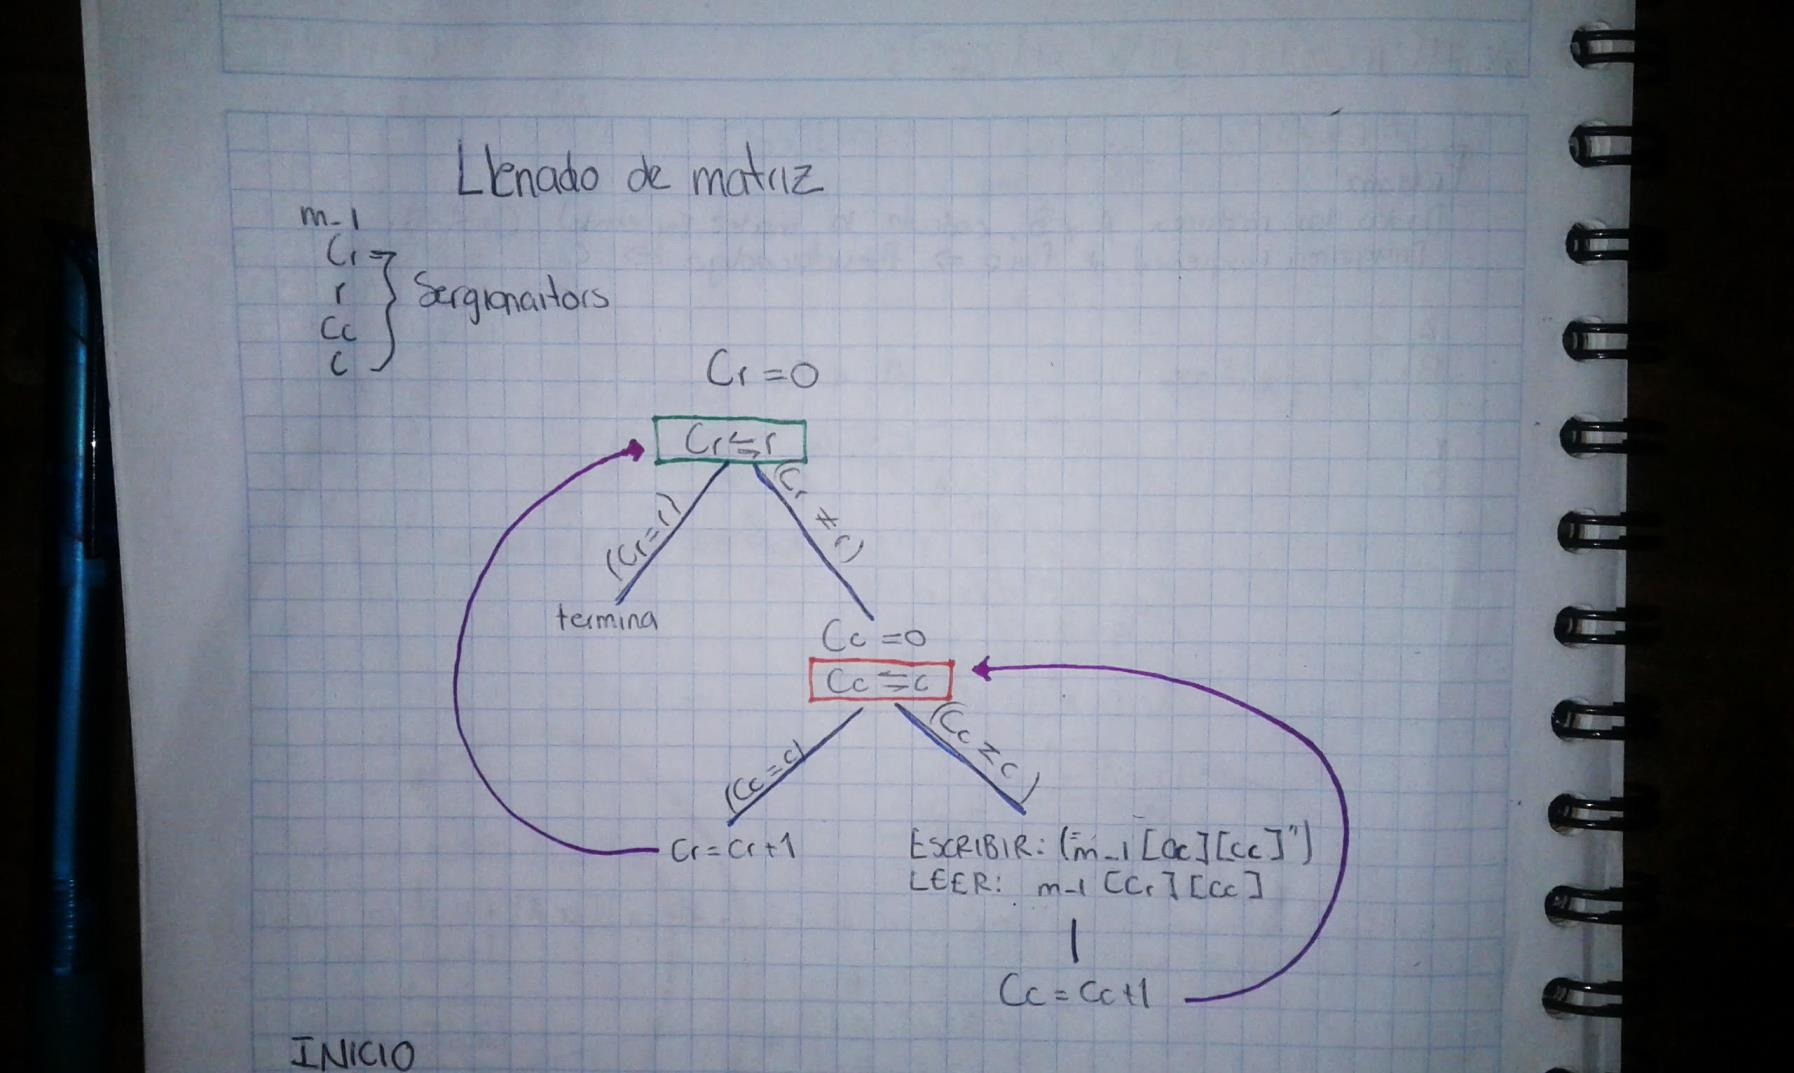 Llenado de matriz
m-1
Cr
r
Cc
c
Cr = 0
Cr ⇆ r
(Cr = r)
(Cr ≠ r)
termina
Cc = 0
Cc ⇆ c
(Cc = c)
(Cc ≠ c)
Cr = Cr + 1
ESCRIBIR: ("m-1 [Cc][Cc]")
LEER: m-1 [Cr][Cc]
Cc = Cc + 1
INICIO